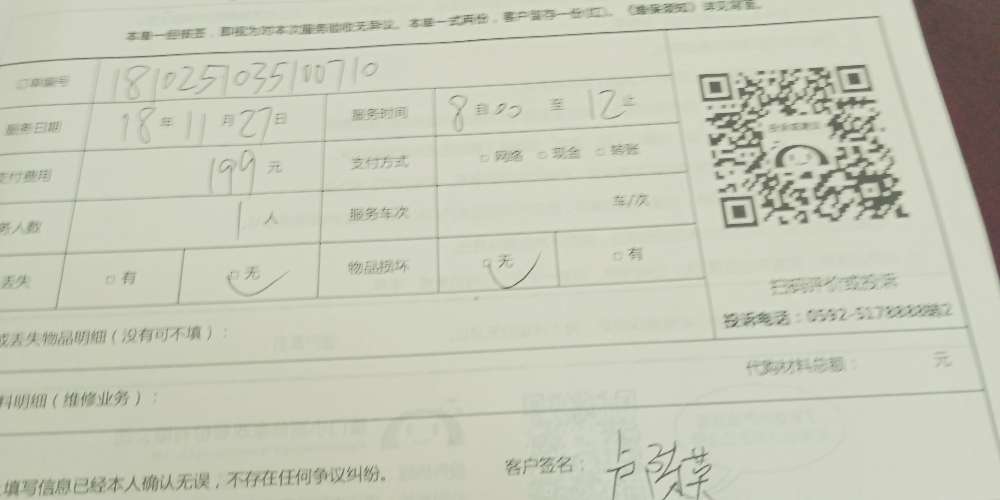 本单一经签签，即视为对本次服务验收无异议。本单一式两份，客户留存一份(红)。《维保须知》详见背面。
订单编号 181025103510710
服务日期 18年11月27日 服务时间 8自00 至 12止
支付费用 199元 支付方式 □网络 □现金 □转账
务人数 1人 服务车次 车/次
丢失 □有 □无 物品损坏 □无 □有
扫码评价或投诉
投诉电话：0592-5178888转2
或丢失物品明细（没有可不填）：
代购材料总额： 元
料明细（维修业务）：
填写信息已经本人确认无误，不存在任何争议纠纷。
客户签名：